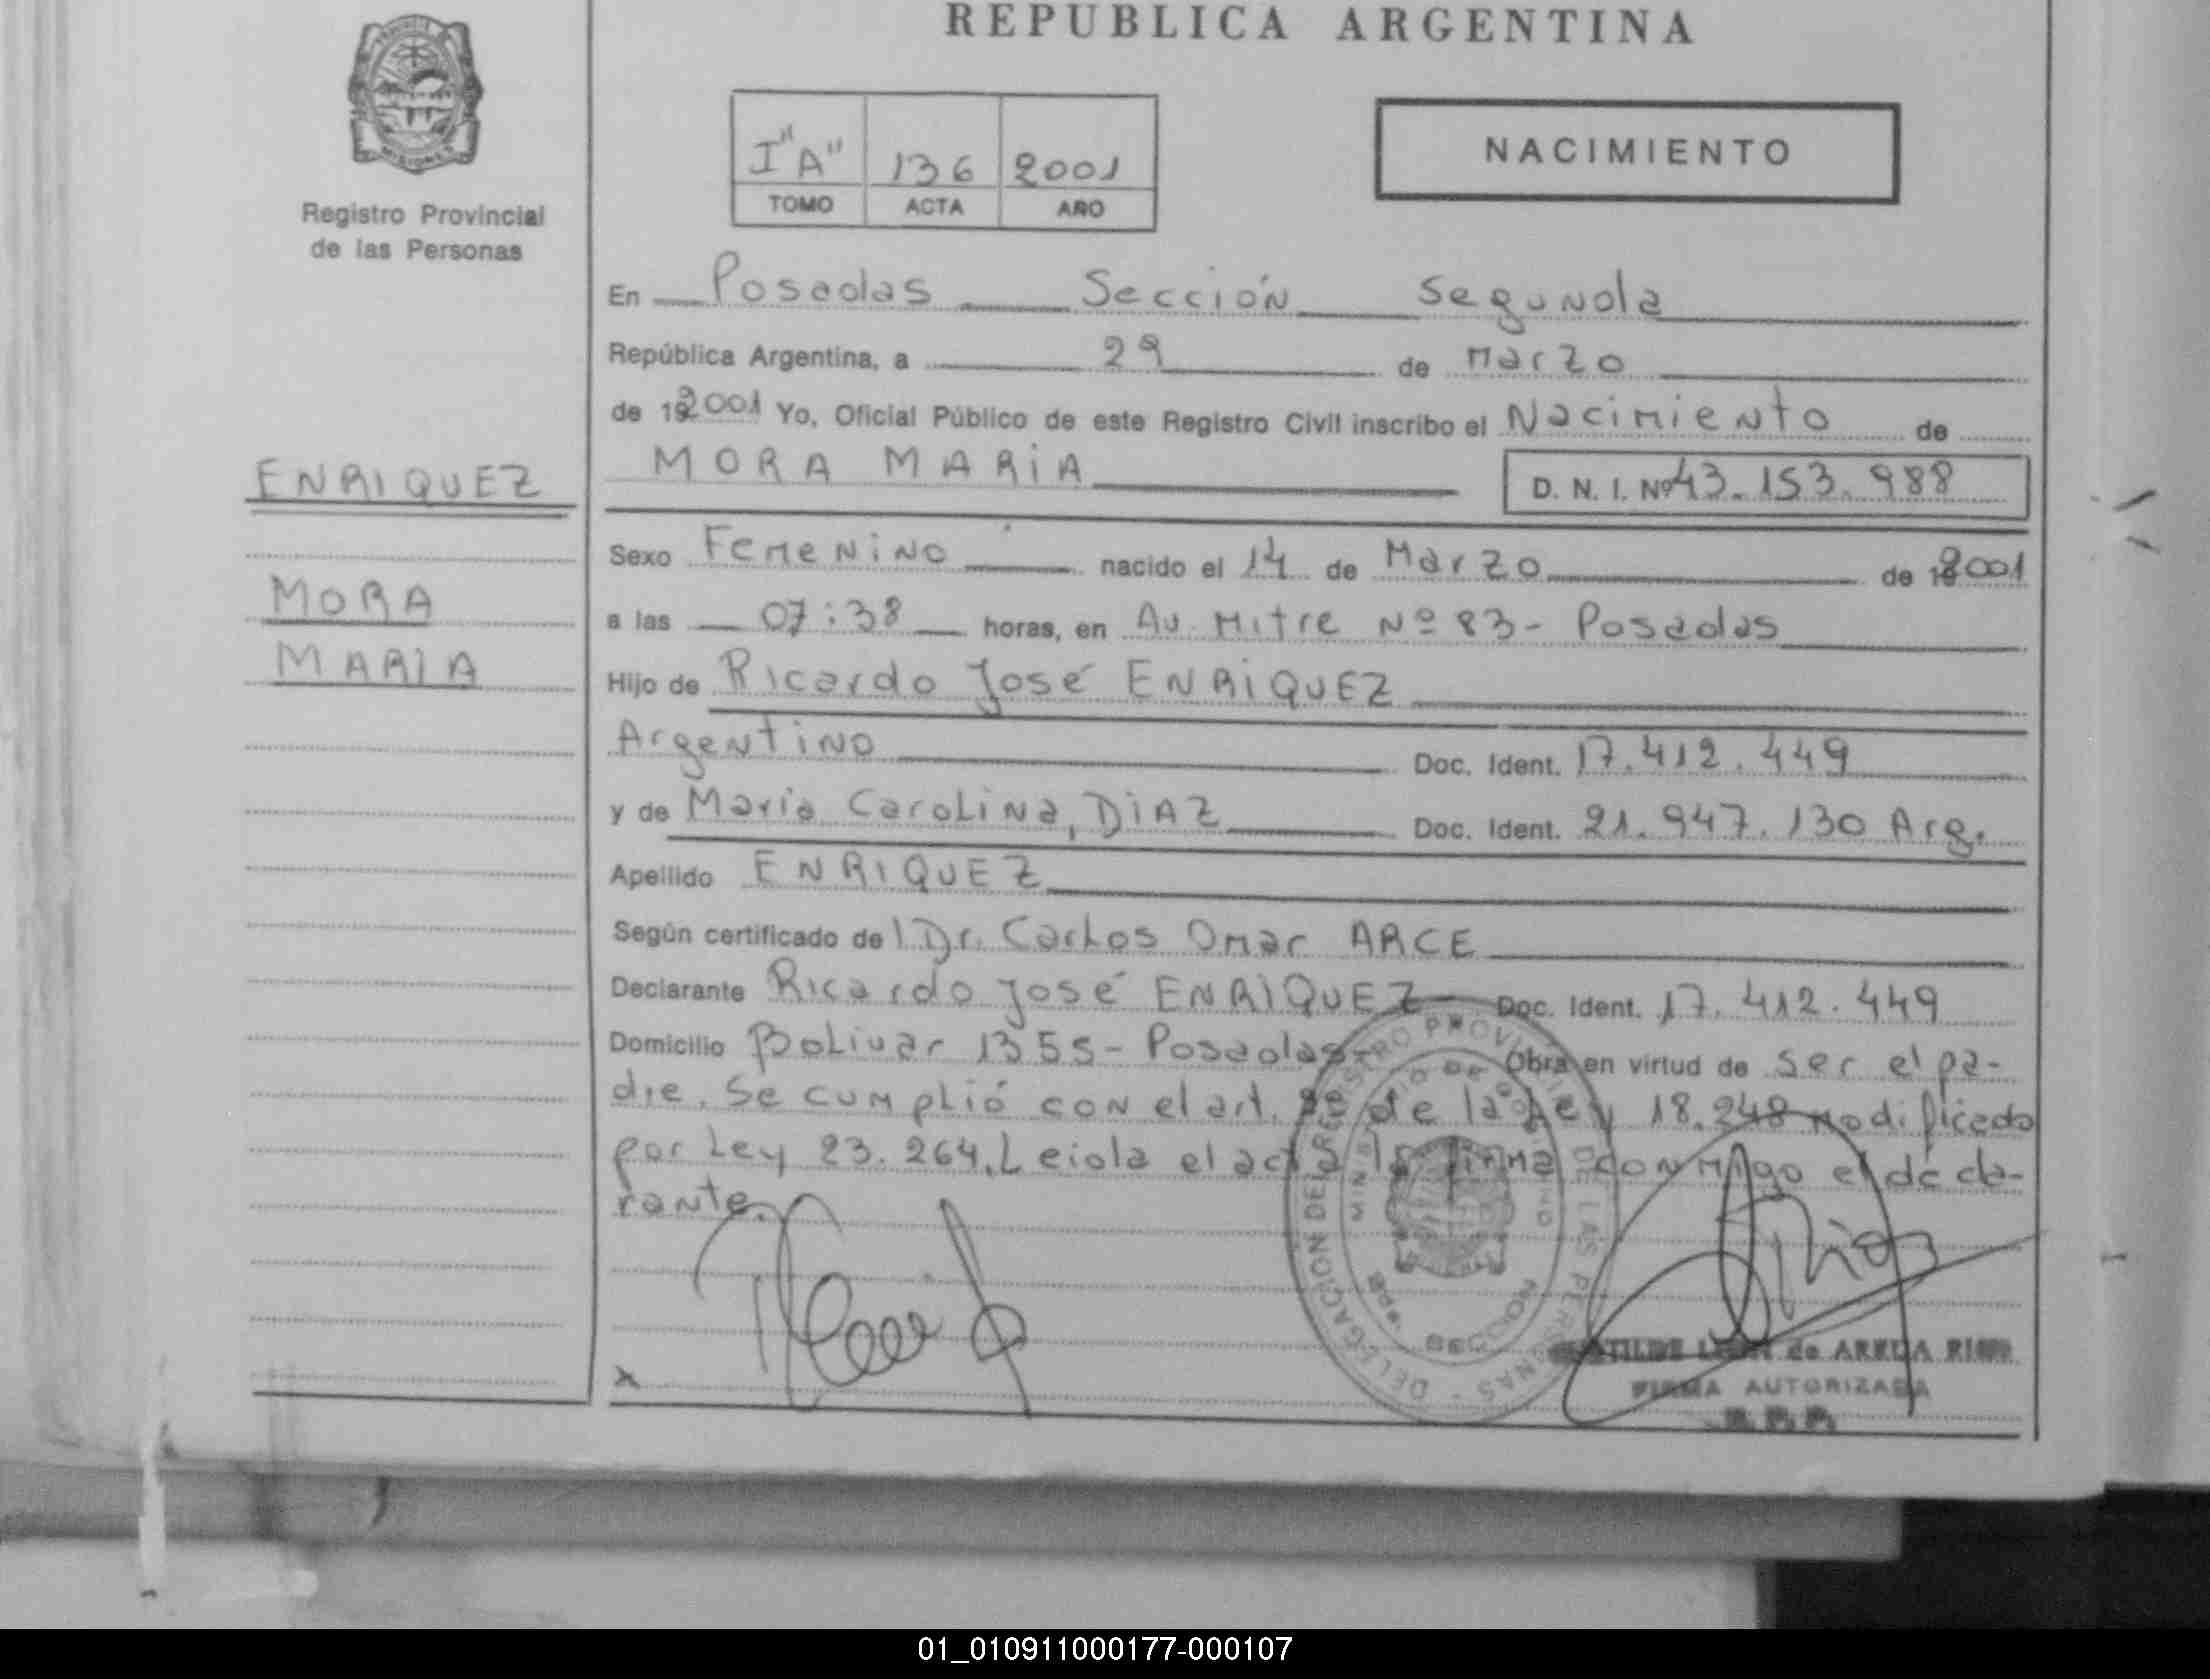 REPUBLICA ARGENTINA
MISIONES
Registro Provincial
de las Personas
I "A" 136 2001
TOMO ACTA AÑO
NACIMIENTO
En Posadas Sección Segunda
República Argentina, a 29 de Marzo
de 192001 Yo, Oficial Público de este Registro Civil inscribo el Nacimiento de
MORA MARIA D. N. I. Nº 43.153.988
ENRIQUEZ
MORA
MARIA
Sexo Femenino nacido el 14 de Marzo de 192001
a las 07:38 horas, en Av. Mitre Nº 83- Posadas
Hijo de Ricardo José ENRIQUEZ
Argentino Doc. Ident. 17.412.449
y de María Carolina, DIAZ Doc. Ident. 21.947.130 Arg.
Apellido ENRIQUEZ
Según certificado del Dr. Carlos Omar ARCE
Declarante Ricardo José ENRIQUEZ Doc. Ident. 17.412.449
Domicilio Bolivar 1355- Posadas- Obra en virtud de ser el pa-
dre. Se cumplió con el art. de la ley 18.248 modificado
por Ley 23.264, Leida el acta la firma conmigo el decla-
rante.
DELEGACION DEL REGISTRO PROVINCIAL DE LAS PERSONAS
de AREDA RIOS
FIRMA AUTORIZADA
R. P. P.
01_010911000177-000107